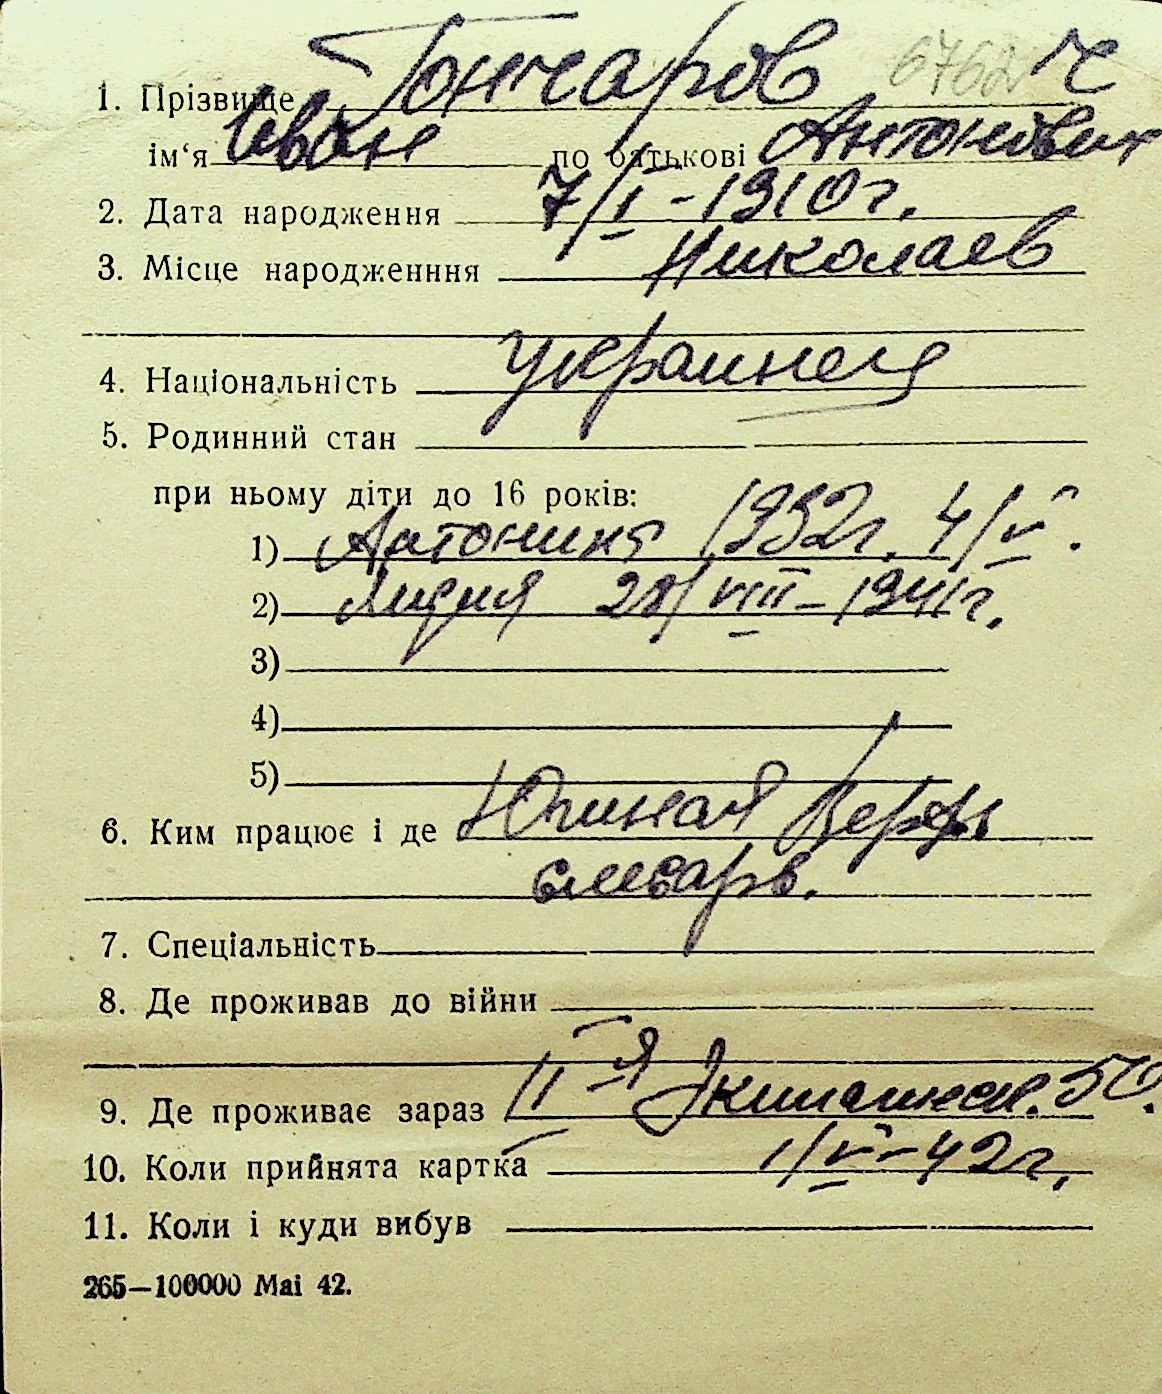 1. Прізвище Гончаров 6762 Ч
ім‘я Иван по батькові Антонович
2. Дата народження 7/I-1910г.
3. Місце народженння Николаев
4. Національність украинец
5. Родинний стан
при ньому діти до 16 років:
1) Антонина 1932г. 4/V.
2) Лидия 28/VIII-1941г.
3)
4)
5)
6. Ким працює і де Южная Верфь
слесарь.
7. Спеціальність
8. Де проживав до війни
9. Де проживає зараз II-я 50.
10. Коли прийнята картка 1/V-42г.
11. Коли і куди вибув
265—100000 Mai 42.